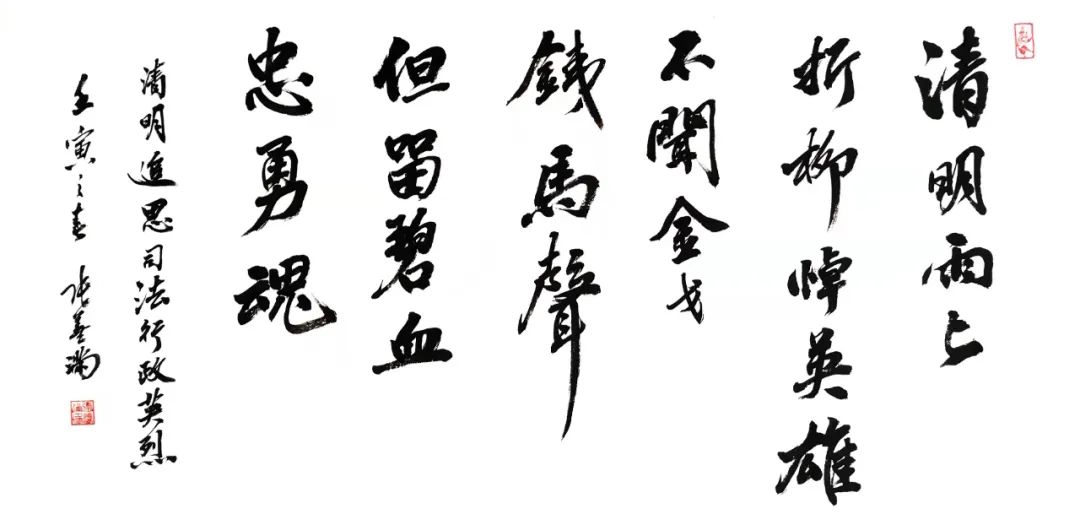 清明雨上
折柳悼英雄
不聞金戈
鐵馬聲
但留碧血
忠勇魂
清明追思司法行政英烈
壬寅之春 张善